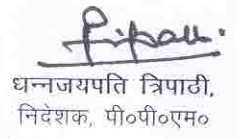 धन्नजयपति त्रिपाठी,
निदेशक, पी०पी०एम०